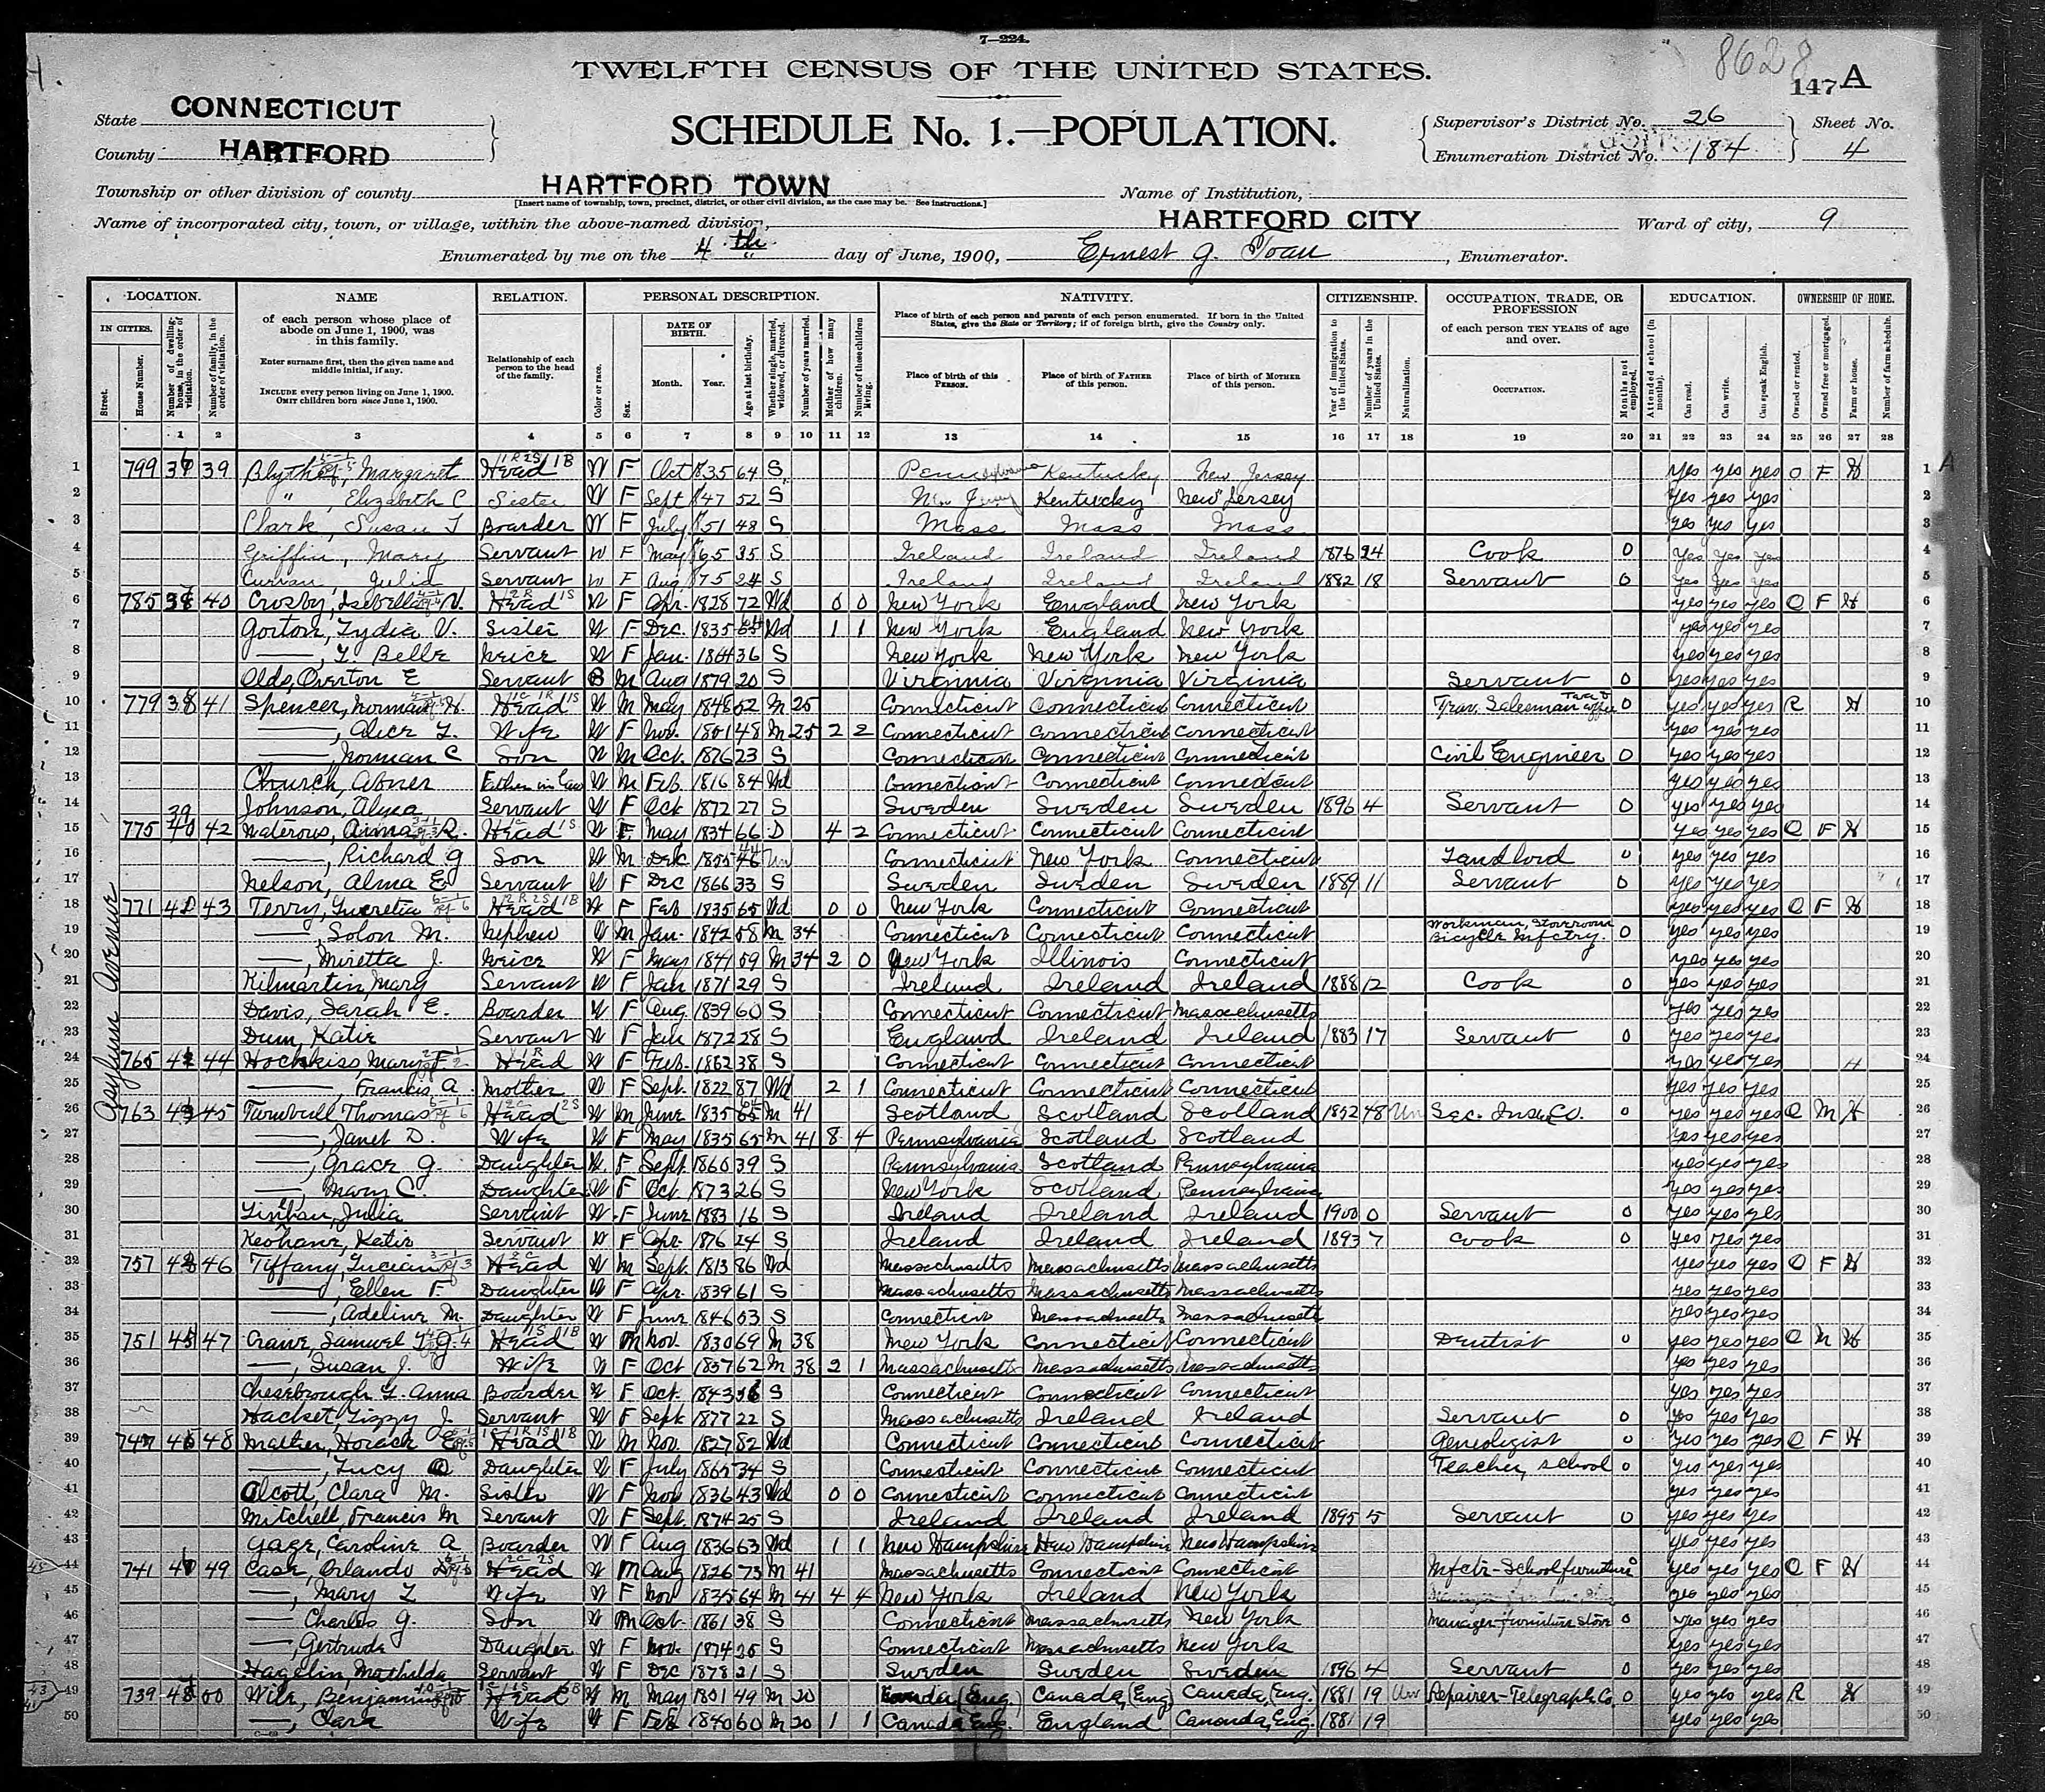 7—224.
8628
TWELFTH CENSUS OF THE UNITED STATES.
147 A
State CONNECTICUT
County HARTFORD
SCHEDULE No. 1.—POPULATION.
Supervisor's District No. 26 Sheet No.
Enumeration District No. 184 4
Township or other division of county HARTFORD TOWN Name of Institution,
[Insert name of township, town, precinct, district, or other civil division, as the case may be. See instructions.]
Name of incorporated city, town, or village, within the above-named division, HARTFORD CITY Ward of city, 9
Enumerated by me on the 4th day of June, 1900, Ernest G. Sloan, Enumerator.
LOCATION. NAME RELATION. PERSONAL DESCRIPTION. NATIVITY. CITIZENSHIP. OCCUPATION, TRADE, OR PROFESSION EDUCATION. OWNERSHIP OF HOME.
IN CITIES. Street. House Number. Number of dwelling-house, in the order of visitation. Number of family, in the order of visitation.
of each person whose place of abode on June 1, 1900, was in this family.
Enter surname first, then the given name and middle initial, if any.
INCLUDE every person living on June 1, 1900. OMIT children born since June 1, 1900.
Relationship of each person to the head of the family.
Color or race. Sex. DATE OF BIRTH. Month. Year. Age at last birthday. Whether single, married, widowed, or divorced. Number of years married. Mother of how many children. Number of these children living.
Place of birth of each person and parents of each person enumerated. If born in the United States, give the State or Territory; if of foreign birth, give the Country only.
Place of birth of this PERSON. Place of birth of FATHER of this person. Place of birth of MOTHER of this person.
Year of immigration to the United States. Number of years in the United States. Naturalization.
of each person TEN YEARS of age and over.
OCCUPATION. Months not employed.
Attended school (in months). Can read. Can write. Can speak English.
Owned or rented. Owned free or mortgaged. Farm or house. Number of farm schedule.
1 2 3 4 5 6 7 8 9 10 11 12 13 14 15 16 17 18 19 20 21 22 23 24 25 26 27 28
Asylum Avenue
1 799 39 Blythe, Margaret Head W F Oct 1835 64 S Pennsylvania Kentucky New Jersey yes yes yes O F H 1
2 " Elizabeth C Sister W F Sept 47 52 S New Jersey Kentucky New Jersey yes yes yes 2
3 Clark, Susan T Boarder W F July 51 48 S Mass Mass Mass yes yes yes 3
4 Griffin, Mary Servant W F May 65 35 S Ireland Ireland Ireland 1876 24 Cook 0 yes yes yes 4
5 Curran, Julia Servant W F Aug 75 24 S Ireland Ireland Ireland 1882 18 Servant 0 yes yes yes 5
6 785 40 Crosby, Isabella V. Head W F Apr. 1828 72 Wd 0 0 New York England New York yes yes yes O F H 6
7 Gorton, Lydia V. Sister W F Dec. 1835 64 Wd 1 1 New York England New York yes yes yes 7
8 —, L. Belle Neice W F Jan. 1864 36 S New York New York New York yes yes yes 8
9 Olds, Overton E Servant B M Aug 1879 20 S Virginia Virginia Virginia Servant 0 yes yes yes 9
10 779 38 41 Spencer, Norman H. Head W M May 1848 52 M 25 Connecticut Connecticut Connecticut Trav. Salesman Tea & Coffee 0 yes yes yes R H 10
11 —, Alice L. Wife W F Nov. 1851 48 M 25 2 2 Connecticut Connecticut Connecticut yes yes yes 11
12 —, Norman C Son W M Oct. 1876 23 S Connecticut Connecticut Connecticut Civil Engineer 0 yes yes yes 12
13 Church, Abner Father in law W M Feb. 1816 84 Wd Connecticut Connecticut Connecticut yes yes yes 13
14 Johnson, Alma Servant W F Oct 1872 27 S Sweden Sweden Sweden 1896 4 Servant 0 yes yes yes 14
15 775 39 42 Waterous, Anna R. Head W F May 1834 66 D 4 2 Connecticut Connecticut Connecticut yes yes yes O F H 15
16 —, Richard G Son W M Dec 1855 44 Un Connecticut New York Connecticut Landlord 0 yes yes yes 16
17 Nelson, Alma E. Servant W F Dec 1866 33 S Sweden Sweden Sweden 1889 11 Servant 0 yes yes yes 17
18 771 40 43 Terry, Lucretia Head W F Feb 1835 65 Wd 0 0 New York Connecticut Connecticut yes yes yes O F H 18
19 — Solon M. Nephew W M Jan. 1842 58 M 34 Connecticut Connecticut Connecticut Workman, Storeroom Bicycle Mnfctry. 0 yes yes yes 19
20 —, Muretta J. Neice W F May 1841 59 M 34 2 0 New York Illinois Connecticut yes yes yes 20
21 Kilmartin, Mary Servant W F Jan 1871 29 S Ireland Ireland Ireland 1888 12 Cook 0 yes yes yes 21
22 Davis, Sarah E. Boarder W F Aug 1839 60 S Connecticut Connecticut Massachusetts yes yes yes 22
23 Dum, Katie Servant W F Jan 1872 28 S England Ireland Ireland 1883 17 Servant 0 yes yes yes 23
24 765 44 Hochkiss, Mary F Head W F Feb. 1862 38 S Connecticut Connecticut Connecticut yes yes yes H 24
25 —, Francis A. Mother W F Sept. 1822 87 Wd 2 1 Connecticut Connecticut Connecticut yes yes yes 25
26 763 45 Turnbull Thomas Head W M June 1835 64 M 41 Scotland Scotland Scotland 1852 48 Un Sec. Insu. Co. 0 yes yes yes O M H 26
27 —, Janet D. Wife W F May 1835 65 M 41 8 4 Pennsylvania Scotland Scotland yes yes yes 27
28 —, Grace G. Daughter W F Sept. 1860 39 S Pennsylvania Scotland Pennsylvania yes yes yes 28
29 —, Mary C. Daughter W F Oct 1873 26 S New York Scotland Pennsylvania yes yes yes 29
30 Julia Servant W F June 1883 16 S Ireland Ireland Ireland 1900 0 Servant 0 yes yes yes 30
31 Keohane, Katie Servant W F Apr. 1876 24 S Ireland Ireland Ireland 1893 7 Cook 0 yes yes yes 31
32 757 46 Tiffany, Lucian Head W M Sept. 1813 86 Wd Massachusetts Massachusetts Massachusetts yes yes yes O F H 32
33 —, Ellen F. Daughter W F Apr. 1839 61 S Massachusetts Massachusetts Massachusetts yes yes yes 33
34 —, Adeline M. Daughter W F June 1846 53 S Connecticut Massachusetts Massachusetts yes yes yes 34
35 751 47 Crane, Samuel L. G. Head W M Nov. 1830 69 M 38 New York Connecticut Connecticut Dentist 0 yes yes yes O M H 35
36 —, Susan J. Wife W F Oct 1837 62 M 38 2 1 Massachusetts Massachusetts Massachusetts yes yes yes 36
37 Chesebrough L. Anna Boarder W F Oct. 1843 56 S Connecticut Connecticut Connecticut yes yes yes 37
38 Hacket, Lizzy J. Servant W F Sept 1877 22 S Massachusetts Ireland Ireland Servant 0 yes yes yes 38
39 747 48 Mather, Horace E. Head W M Nov. 1827 82 Wd Connecticut Connecticut Connecticut Geneologist 0 yes yes yes O F H 39
40 —, Lucy O Daughter W F July 1865 34 S Connecticut Connecticut Connecticut Teacher, school 0 yes yes yes 40
41 Olcott, Clara M. Sister W F Nov 1836 43 Wd 0 0 Connecticut Connecticut Connecticut yes yes yes 41
42 Mitchell, Francis M Servant W F Sept. 1874 25 S Ireland Ireland Ireland 1895 5 Servant 0 yes yes yes 42
43 Gage, Caroline A Boarder W F Aug 1836 63 Wd 1 1 New Hampshire New Hampshire New Hampshire yes yes yes 43
44 741 49 Case, Orlando D. Head W M Aug 1826 73 M 41 Massachusetts Connecticut Connecticut Mfctr-School furniture 0 yes yes yes O F H 44
45 —, Mary L Wife W F Nov 1835 64 M 41 4 4 New York Ireland New York yes yes yes 45
46 — Charles G. Son W M Oct. 1861 38 S Connecticut Massachusetts New York Manager-furniture store 0 yes yes yes 46
47 — Gertrude Daughter W F Nov. 1874 25 S Connecticut Massachusetts New York yes yes yes 47
48 Hagelin, Mathilda Servant W F Dec 1878 21 S Sweden Sweden Sweden 1896 4 Servant 0 yes yes yes 48
49 739 50 Wile, Benjamin Head W M May 1851 49 M 20 Canada (Eng. Canada, (Eng) Canada, (Eng. 1881 19 Un Repairer-Telegraph Co. 0 yes yes yes R H 49
50 —, Clara Wife W F Feb 1840 60 M 20 1 1 Canada Eng. England Canada, Eng. 1881 19 yes yes yes 50